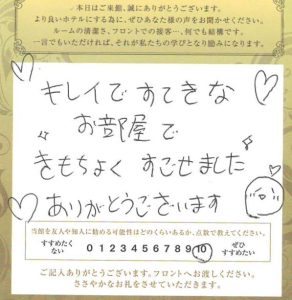 本日はご来館、誠にありがとうございます。
より良いホテルにする為に、ぜひあなた様の声をお聞かせください。
ルームの清潔さ、フロントでの接客…、何でも結構です。
一言でもいただければ、それが私たちの学びとなり励みになります。
キレイで すてきな
お部屋で
きもちよく すごせました
ありがとうございます
当館を友人や知人に勧める可能性はどのくらいあるか、点数で教えてください。
すすめたくない 0 1 2 3 4 5 6 7 8 9 10 ぜひすすめたい
ご記入ありがとうございます。フロントへお渡しください。
ささやかなお礼をさせていただきます。